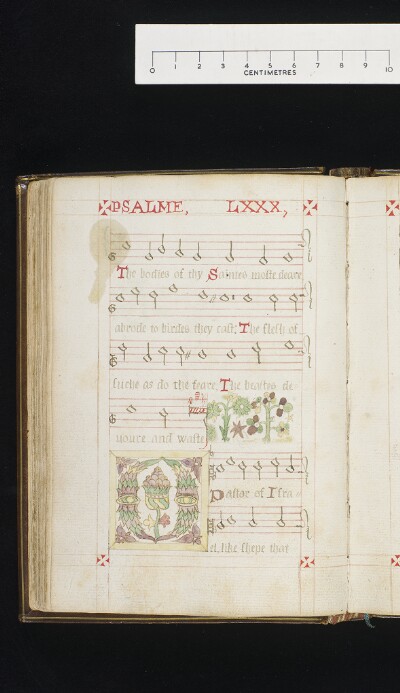 0 1 2 3 4 5 6 7 8 9 10
CENTIMETRES
PSALME, LXXX,
The bodies of thy Saintes moste deare
abrode to birdes they cast: The flesh of
suche as do the feare, The beastes de-
uoure and waste
O Pastor of Isra-
el, like shepe that